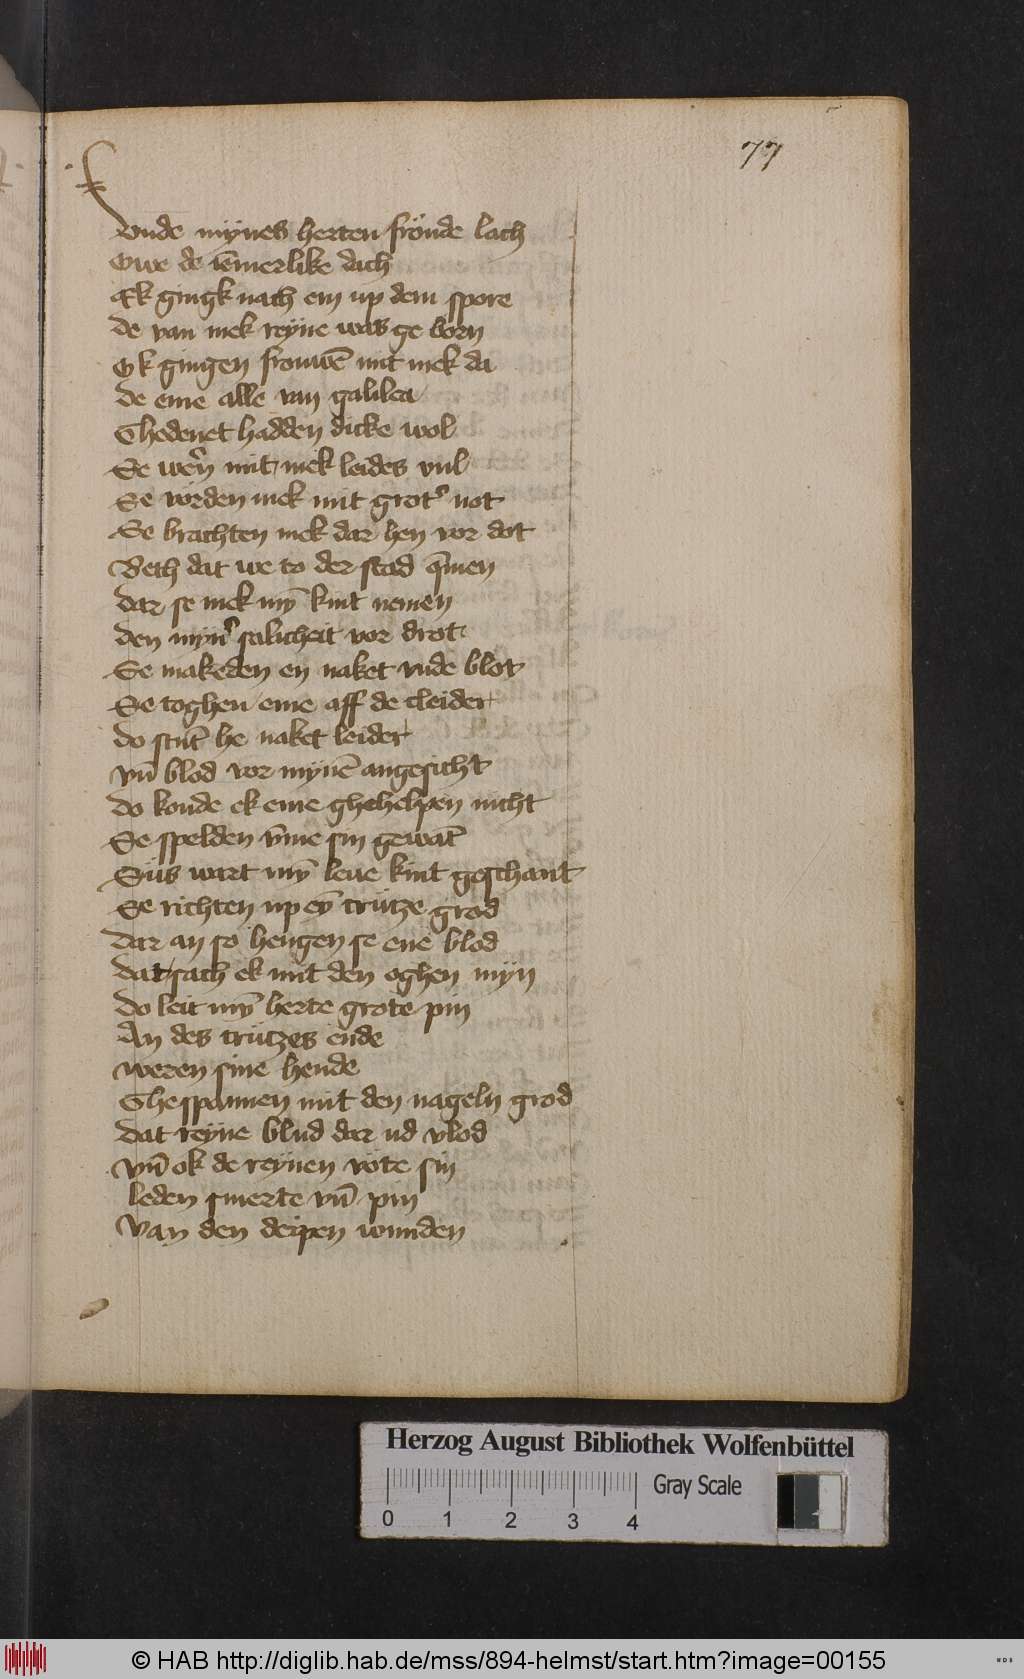 77
Vnde mÿnes herten frönde lach
Owe de iēmerlike dach
Ek gingk nach em up dem spore
de van mek reyne was ge born
Ok gingen frouwē mit mek da
de eme alle van galilea
Ghedenet hadden dicke wol
Se wern̄ mit mek leides vul
Se vörden mek mit grot' not
Se brachten mek dar hen vor dot
Beth dat we to der stad q̄men
dar se mek mȳ kint nemen
den myn' salicheit vor drot
Se makeden en naket vnde blot
Se toghen eme aff de cleider
do stūt he naket leider
vn̄ blod vor mynē angesicht
do konde ek eme ghehelpen nicht
Se spelden v̄me sin gewāt
Süs wart mȳ leue kint geschant
Se richten up eȳ crütze grod
dar an so hengen se ene blod
dat sach ek mit den oghen myn
do leit mȳ herte grote pin
An des crützes ende
weren sine hende
Ghespannen mit den nageln grod
dat reyne blud dar ud vlod
vn̄ ok de reynen vöte sin
leden smerte vn̄ pin
Van den deipen wunden
Herzog August Bibliothek Wolfenbüttel
0 1 2 3 4
Gray Scale
© HAB http://diglib.hab.de/mss/894-helmst/start.htm?image=00155
WDB